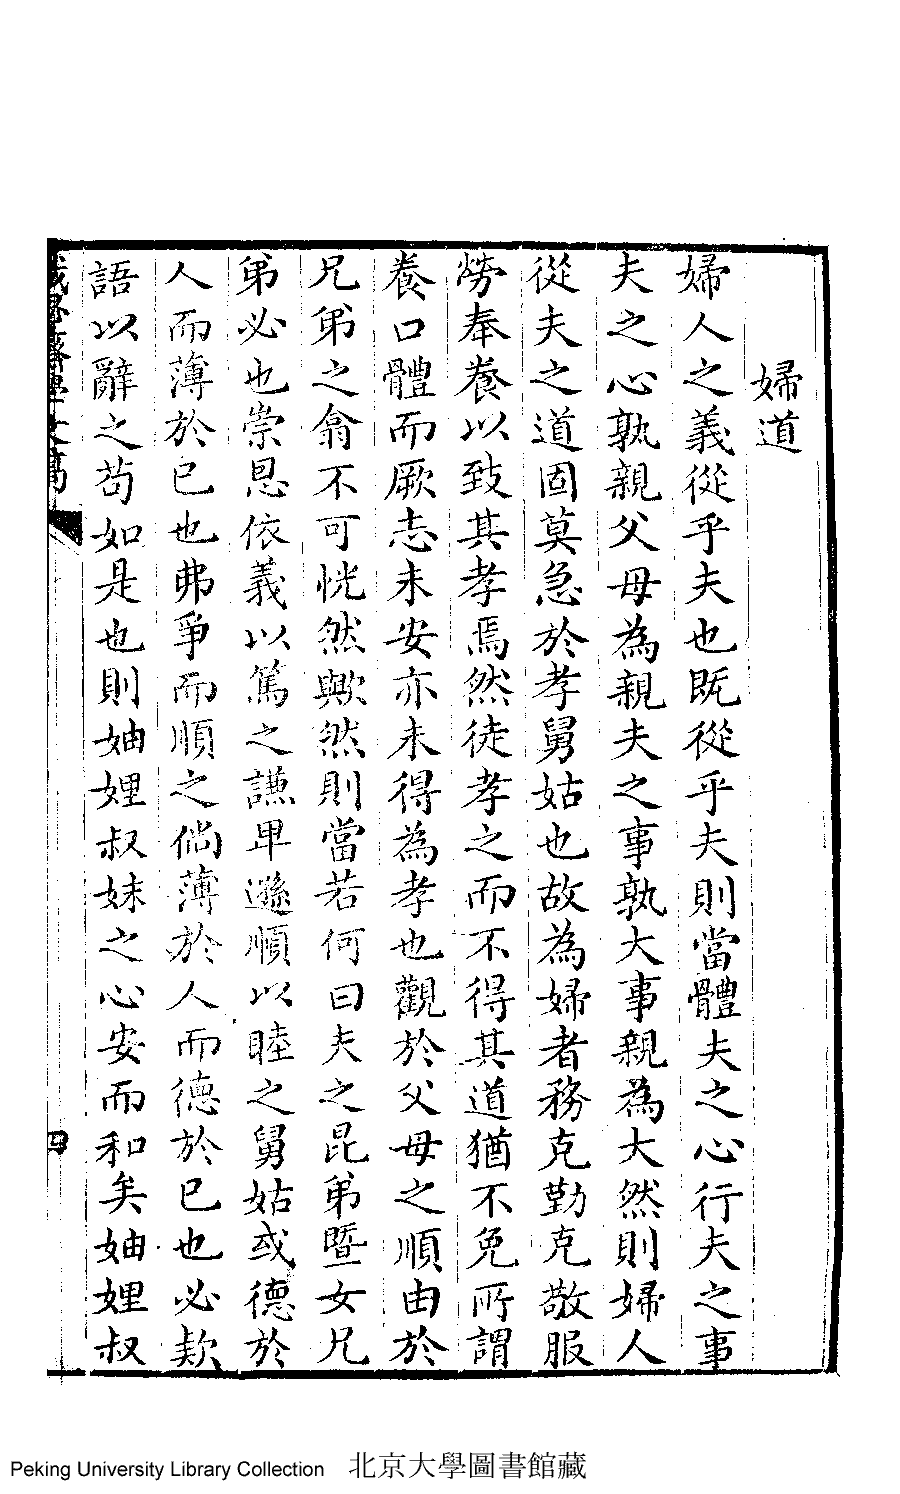 婦道
婦人之義從乎夫也既從乎夫則當體夫之心行夫之事
夫之心孰親父母為親夫之事孰大事親為大然則婦人
從夫之道固莫急於孝舅姑也故為婦者務克勤克敬服
勞奉養以致其孝焉然徒孝之而不得其道猶不免所謂
養口體而厥志未安亦未得為孝也觀於父母之順由於
兄弟之翕不可恍然歟然則當若何曰夫之昆弟暨女兄
弟必也崇恩依義以篤之謙卑遜順以睦之舅姑或德於
人而薄於已也弗爭而順之倘薄於人而德於已也必欵
語以辭之苟如是也則妯娌叔妹之心安而和矣妯娌叔
四
Peking University Library Collection 北京大學圖書館藏